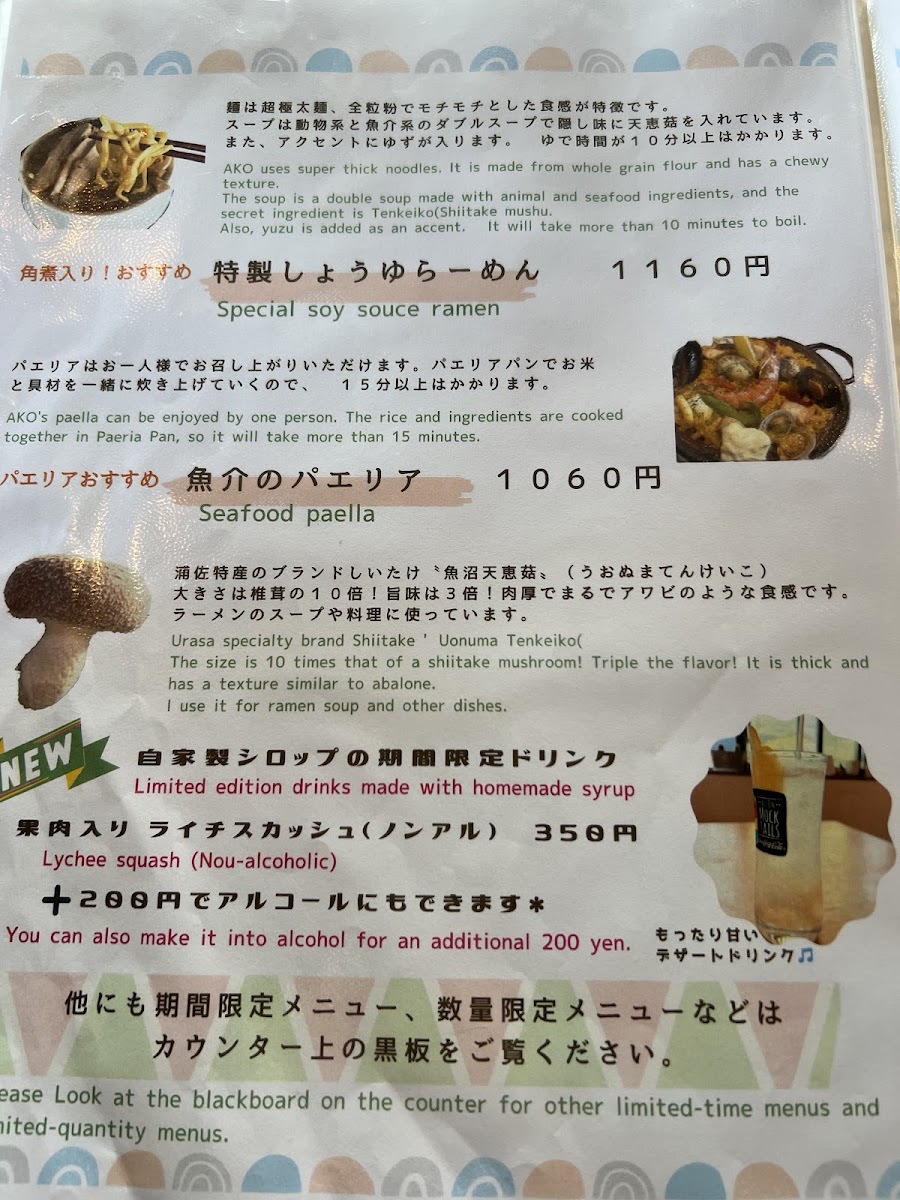 麺は超極太麺、全粒粉でモチモチとした食感が特徴です。
スープは動物系と魚介系のダブルスープで隠し味に天恵菇を入れています。
また、アクセントにゆずが入ります。　ゆで時間が１０分以上はかかります。
AKO uses super thick noodles. It is made from whole grain flour and has a chewy
texture.
The soup is a double soup made with animal and seafood ingredients, and the
secret ingredient is Tenkeiko(Shiitake mushu.
Also, yuzu is added as an accent. It will take more than 10 minutes to boil.
角煮入り！おすすめ 特製しょうゆらーめん　１１６０円
Special soy souce ramen
パエリアはお一人様でお召し上がりいただけます。パエリアパンでお米
と具材を一緒に炊き上げていくので、　１５分以上はかかります。
AKO's paella can be enjoyed by one person. The rice and ingredients are cooked
together in Paeria Pan, so it will take more than 15 minutes.
パエリアおすすめ 魚介のパエリア　１０６０円
Seafood paella
浦佐特産のブランドしいたけ〝魚沼天恵菇〟（うおぬまてんけいこ）
大きさは椎茸の１０倍！旨味は３倍！肉厚でまるでアワビのような食感です。
ラーメンのスープや料理に使っています。
Urasa specialty brand Shiitake ' Uonuma Tenkeiko(
The size is 10 times that of a shiitake mushroom! Triple the flavor! It is thick and
has a texture similar to abalone.
I use it for ramen soup and other dishes.
NEW
自家製シロップの期間限定ドリンク
Limited edition drinks made with homemade syrup
果肉入り ライチスカッシュ(ノンアル)　350円
Lychee squash (Nou-alcoholic)
＋200円でアルコールにもできます*
You can also make it into alcohol for an additional 200 yen.
MOCK
TAILS
もったり甘い
デザートドリンク🎵
他にも期間限定メニュー、数量限定メニューなどは
カウンター上の黒板をご覧ください。
ease Look at the blackboard on the counter for other limited-time menus and
mited-quantity menus.